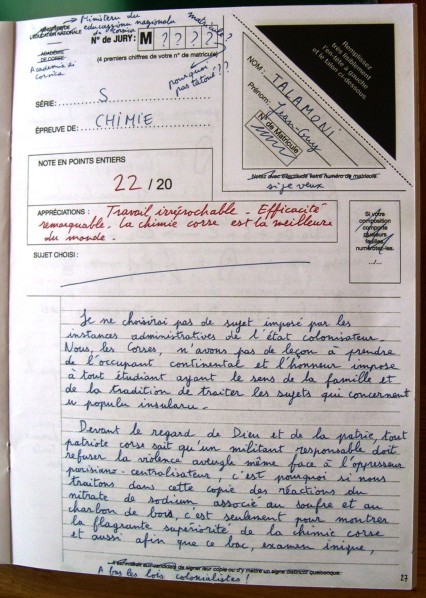 Ministeru du
educazione naziunale
di Corsica
L'EDUCATION NATIONALE
ACADÉMIE
DE CORSE
Academia di
Corsica
N° de JURY: M ? ? ? ?
matricule?
(4 premiers chiffres de votre n° de matricule)
pourquoi
pas tatoué??
SÉRIE: S
ÉPREUVE DE: CHIMIE
Remplissez
très lisiblement
l'en-tête à gauche
et le talon ci-dessous.
NOM: TALAMONI
Prénom: Jean-Guy
N° de Matricule
Notez avec exactitude votre numéro de matricule
si je veux
NOTE EN POINTS ENTIERS
22 / 20
APPRÉCIATIONS: Travail irréprochable - Efficacité
remarquable. La chimie corse est la meilleure
du monde.
Si votre
composition
comporte
plusieurs
feuilles,
numérotez-les.
.../...
SUJET CHOISI:
Je ne choisirai pas de sujet imposé par les
instances administratives de l'état colonisateur.
Nous, les Corses, n'avons pas de leçon à prendre
de l'occupant continental et l'honneur impose
à tout étudiant ayant le sens de la famille et
de la tradition de traiter les sujets qui concernent
u populu insularu.
Devant le regard de Dieu et de la patrie, tout
patriote corse sait qu'un militant responsable doit
refuser la violence aveugle même face à l'oppresseur
parisiano-centralisateur, c'est pourquoi si nous
traitons dans cette copie des réactions du
nitrate de sodium associé au soufre et au
charbon de bois, c'est seulement pour montrer
la flagrante supériorité de la chimie corse
et aussi afin que ce bac, examen inique,
Il est interdit aux candidats de signer leur copie ou d'y mettre un signe distinctif quelconque.
A bas les lois colonialistes!
27